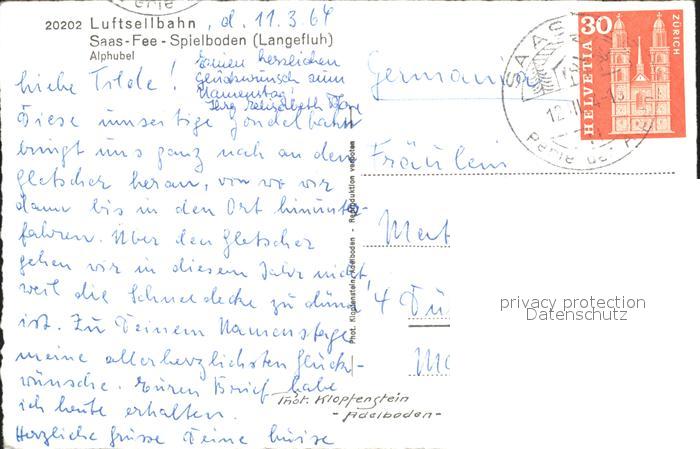 Perle
20202 Luftseilbahn, d. 11.3.64
Saas-Fee - Spielboden (Langefluh)
Alphubel
Einen herzlichen
Glückwunsch zum
Namenstag!
Ihre Elisabeth
Liebe Tilde!
Diese umseitige Gondelbahn
bringt uns ganz nah an den
Gletscher heran, von wo wir
dann bis in den Ort hinunter-
fahren. Über den Gletscher
gehen wir in diesem Jahr nicht
weil die Schneedecke zu dünn
ist. Zu Deinem Namenstage
meine allerherzlichsten Glück-
wünsche. Euren Brief habe
ich heute erhalten.
Herzliche Grüsse Deine Luise
Phot. Klopfenstein, Adelboden - Reproduktion verboten
Phot. Klopfenstein
- Adelboden -
Germania
Fräulein
Mat
4 Dü
SAAS
12.III.64-18
Perle der
30
HELVETIA
ZÜRICH
privacy protection
Datenschutz